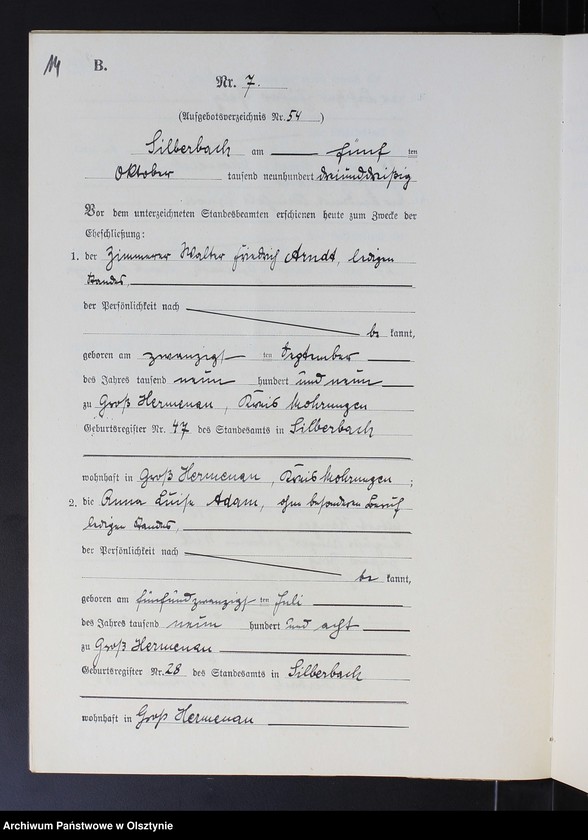 14 B.
Nr. 7.
(Aufgebotsverzeichnis Nr. 54)
Silberbach am fünf ten
Oktober tausend neunhundert dreiunddreißig
Vor dem unterzeichneten Standesbeamten erschienen heute zum Zwecke der
Eheschließung:
1. der Zimmerer Walter Friedrich Arndt, ledigen
Standes,
der Persönlichkeit nach
be kannt,
geboren am zwanzigst ten September
des Jahres tausend neun hundert und neun
zu Groß Hermenau, Kreis Mohrungen
Geburtsregister Nr. 47 des Standesamts in Silberbach
wohnhaft in Groß Hermenau, Kreis Mohrungen ;
2. die Anna Luise Adam, ohne besonderen Beruf
ledigen Standes,
der Persönlichkeit nach
be kannt,
geboren am fünfundzwanzigst ten Juli
des Jahres tausend neun hundert und acht
zu Groß Hermenau
Geburtsregister Nr. 28 des Standesamts in Silberbach
wohnhaft in Groß Hermenau
Archiwum Państwowe w Olsztynie